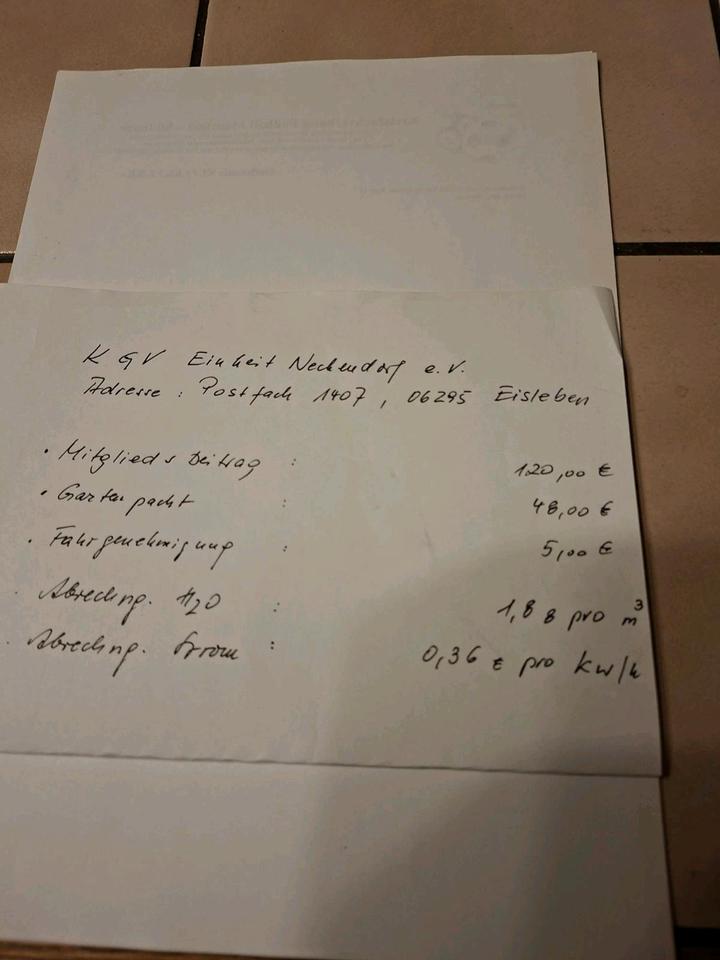 KGV Einheit Neckendorf e.V.
Adresse : Postfach 1407, 06295 Eisleben
• Mitgliedsbeitrag : 120,00 €
• Gartenpacht : 48,00 €
• Fahrgenehmigung : 5,00 €
• Abrechng. H2O : 1,88 pro m³
• Abrechng. Strom : 0,36 € pro kw/h